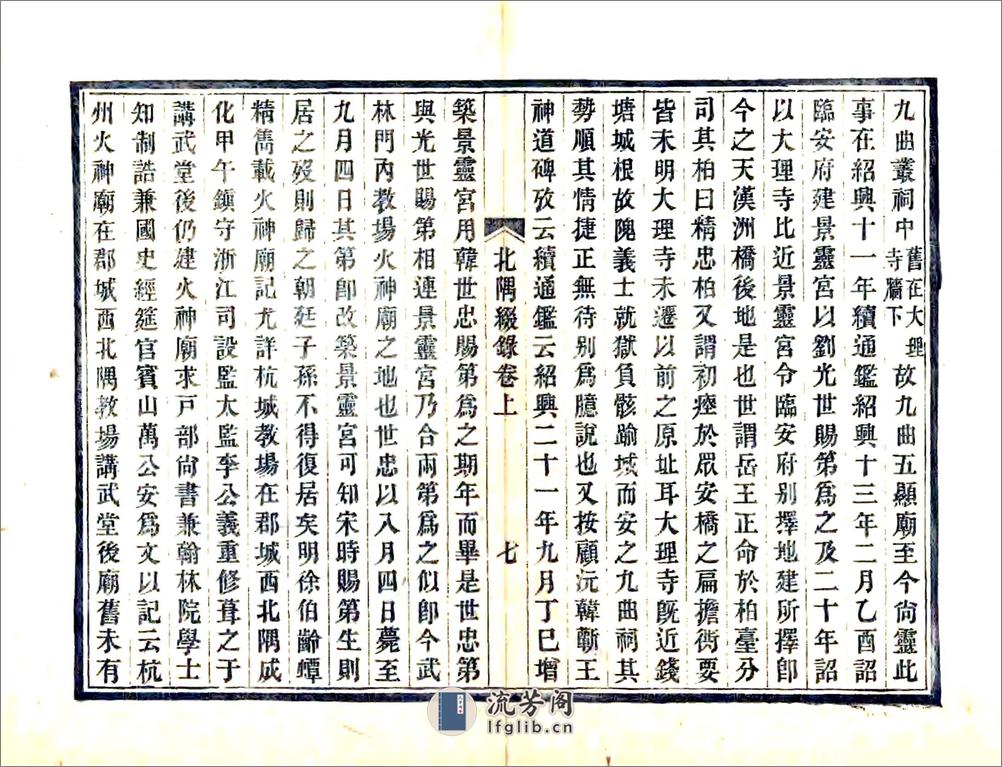 九曲叢祠中舊在大理寺牆下故九曲五顯廟至今尙靈此
事在紹興十一年續通鑑紹興十三年二月乙酉詔
臨安府建景靈宮以劉光世賜第爲之及二十年詔
以大理寺比近景靈宮令臨安府別擇地建所擇卽
今之天漢洲橋後地是也世謂岳王正命於柏臺分
司其柏曰精忠柏又謂初瘞於眾安橋之扁擔衖要
皆未明大理寺未遷以前之原址耳大理寺旣近錢
塘城根故隗義士就獄負骸踰城而安之九曲祠其
勢順其情捷正無待别爲臆說也又按顧沅韓蘄王
神道碑攷云續通鑑云紹興二十一年九月丁巳增
北隅綴錄卷上 七
築景靈宮用韓世忠賜第爲之期年而畢是世忠第
與光世賜第相連景靈宮乃合兩第爲之似卽今武
林門內教場火神廟之地也世忠以入月四日薨至
九月四日其第卽改築景靈宮可知宋時賜第生則
居之歿則歸之朝廷子孫不得復居矣明徐伯齡蟫
精雋載火神廟記尤詳杭城教場在郡城西北隅成
化甲午鎮守浙江司設監太監李公義重修葺之于
講武堂後仍建火神廟求戸部尙書兼翰林院學士
知制誥兼國史經筵官賓山萬公安爲文以記云杭
州火神廟在郡城西北隅教場講武堂後廟舊未有
流芳阁
lfglib.cn